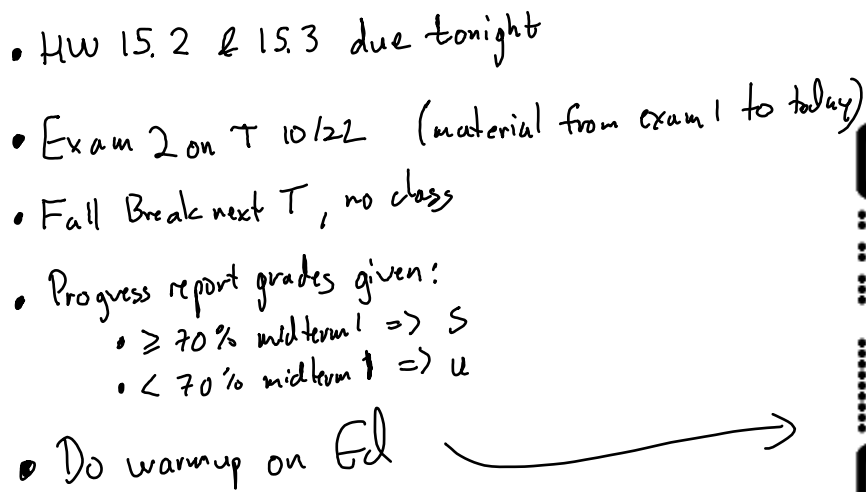 • HW 15.2 & 15.3 due tonight
• Exam 2 on T 10/22 (material from exam 1 to today)
• Fall Break next T, no class
• Progress report grades given:
• ≥ 70% midterm 1 => S
• < 70% midterm 1 => U
• Do warmup on Ed